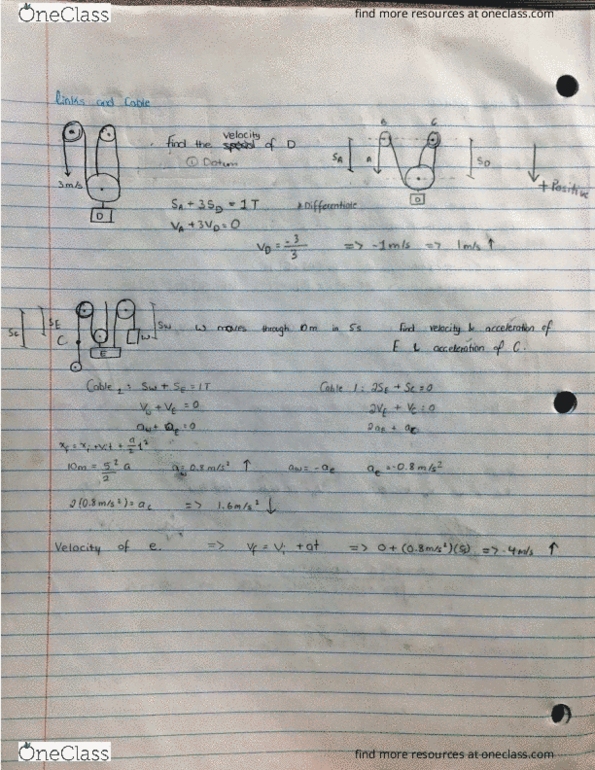 OneClass
find more resources at oneclass.com
Links and Cable
A B C
find the velocity of D
① Datum
3m/s
D
S_A A S_D
D
+ Positive
S_A + 3S_D = 1T * Differentiate
V_A + 3V_D = 0
V_D = -3/3 => -1m/s => 1m/s ↑
S_C S_E C E W S_W
W moves through 10m in 5s Find velocity & acceleration of
E & acceleration of C.
Cable 2: S_W + S_E = 1T Cable 1: 2S_E + S_C = 0
V_W + V_E = 0 2V_E + V_C = 0
a_W + a_E = 0 2a_E + a_C
x_f = x_i + v_i t + a/2 t²
10m = 5²/2 a a_W = 0.8m/s² ↑ a_W = -a_e a_E = -0.8m/s²
2(0.8m/s²) = a_c => 1.6m/s² ↓
Velocity of e. => V_f = V_i + at => 0 + (0.8m/s²)(5) => -4m/s ↑
OneClass
find more resources at oneclass.com